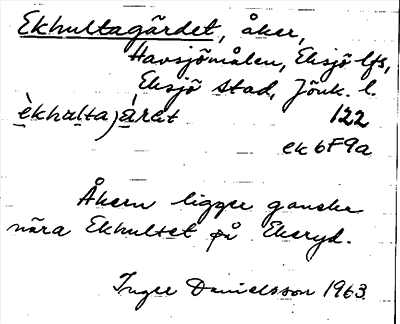 Ekhultagärdet, åker,
Havsjömålen, Eksjö lfs,
Eksjö stad, Jönk. l.
èkhulta jàret 122
ek 6F9a
Åkern ligger ganska
nära Ekhultet på Ekeryd.
Inger Danielsson 1963